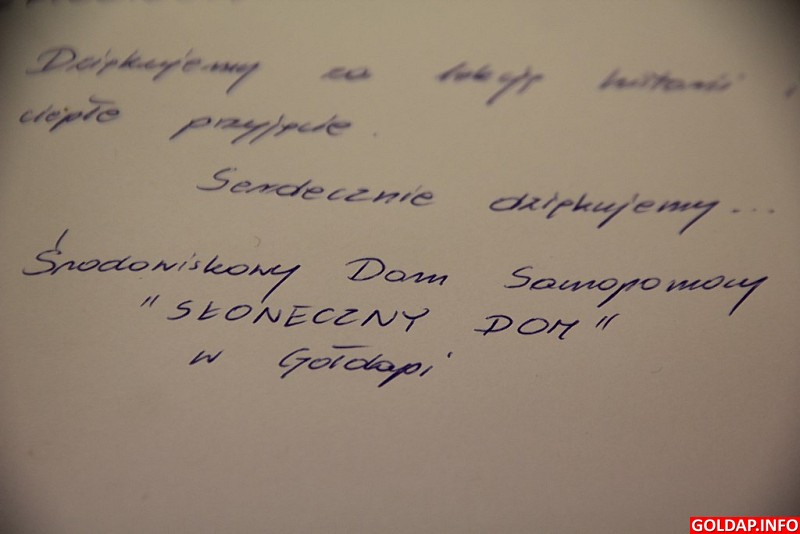 Dziękujemy za lekcję historii i
ciepłe przyjęcie.
Serdecznie dziękujemy...
Środowiskowy Dom Samopomocy
"SŁONECZNY DOM"
w Gołdapi
GOLDAP.INFO